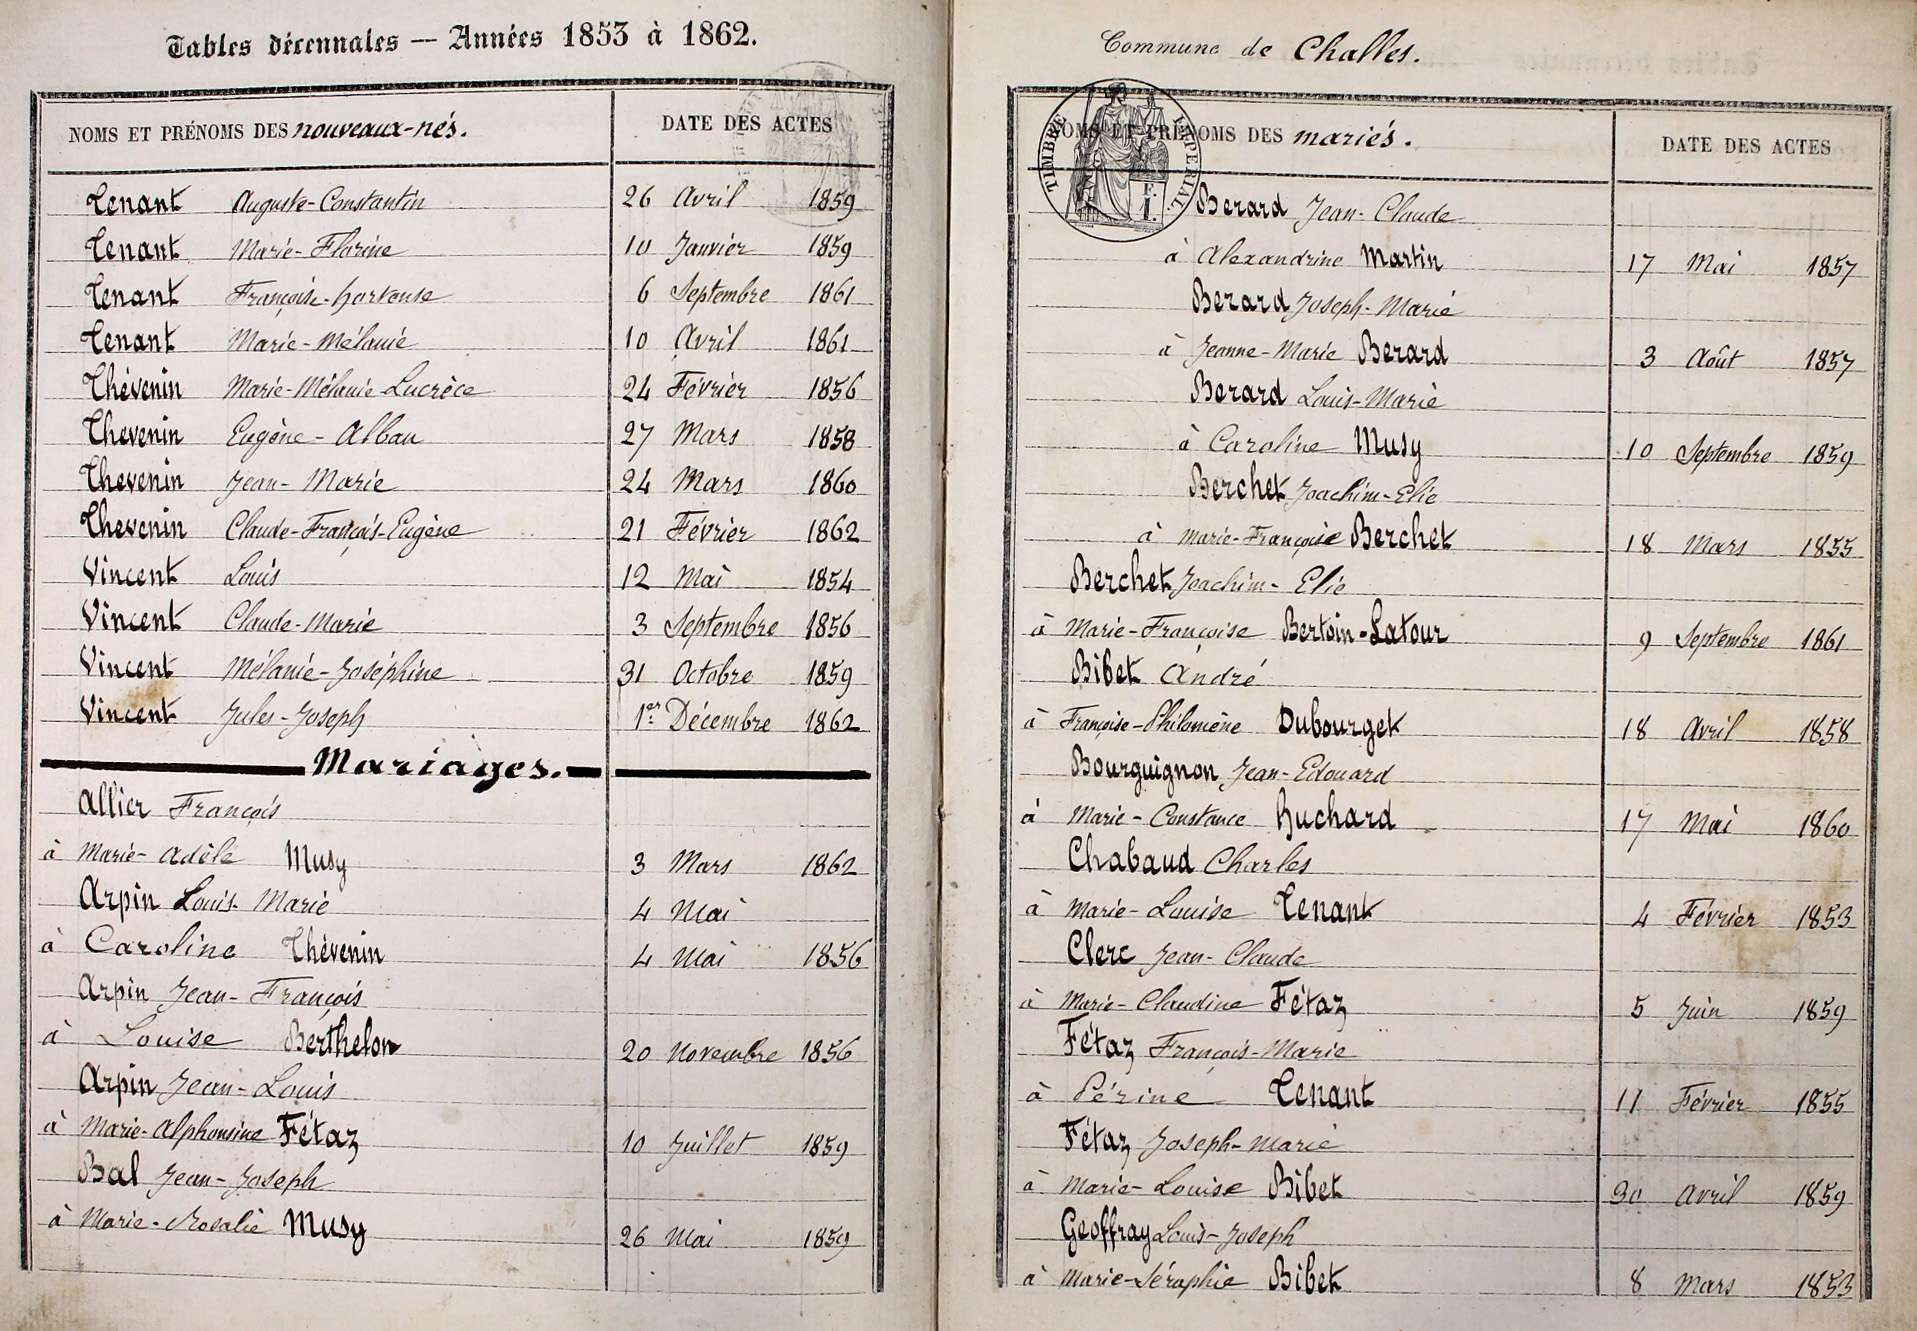 Tables décennales — Années 1853 à 1862.
NOMS ET PRÉNOMS DES nouveaux-nés. DATE DES ACTES
Tenant Auguste-Constantin 26 Avril 1859
Tenant Marie-Florine 10 Janvier 1859
Tenant Françoise-hortense 6 Septembre 1861
Tenant Marie-Mélanie 10 Avril 1861
Thévenin Marie-Mélanie-Lucrèce 24 Février 1856
Thevenin Eugène-Alban 27 Mars 1858
Thevenin Jean-Marie 24 Mars 1860
Thevenin Claude-François-Eugène 21 Février 1862
Vincent Louis 12 Mai 1854
Vincent Claude-Marie 3 Septembre 1856
Vincent Mélanie-Joséphine 31 Octobre 1859
Vincent Jules-Joseph 1er Décembre 1862
Mariages.
Allier François
à Marie-Adèle Musy 3 Mars 1862
Arpin Louis-Marie 4 Mai
à Caroline Thévenin 4 Mai 1856
Arpin Jean-François
à Louise Berthelon 20 Novembre 1856
Arpin Jean-Louis
à Marie-Alphonsine Fétaz 10 Juillet 1859
Bal Jean-Joseph
à Marie-Rosalie Musy 26 Mai 1859
Commune de Challes.
TIMBRE IMPERIAL
NOMS ET PRÉNOMS DES mariés. DATE DES ACTES
Berard Jean-Claude
à Alexandrine Martin 17 Mai 1857
Berard Joseph-Marie
à Jeanne-Marie Berard 3 Août 1857
Berard Louis-Marie
à Caroline Musy 10 Septembre 1859
Berchet Joachim-Elie
à Marie-Françoise Berchet 18 Mars 1855
Berchet Joachim-Elie
à Marie-Françoise Bertoin-Latour 9 Septembre 1861
Bibet André
à Françoise-Philomène Dubourget 18 Avril 1858
Bourguignon Jean-Edouard
à Marie-Constance Huchard 17 Mai 1860
Chabaud Charles
à Marie-Louise Tenant 4 Février 1853
Clerc Jean-Claude
à Marie-Claudine Fétaz 5 Juin 1859
Fétaz François-Marie
à Périne Tenant 11 Février 1855
Fétaz Joseph-Marie
à Marie-Louise Bibet 30 Avril 1859
Geoffray Louis-Joseph
à Marie-Séraphie Bibet 8 Mars 1853